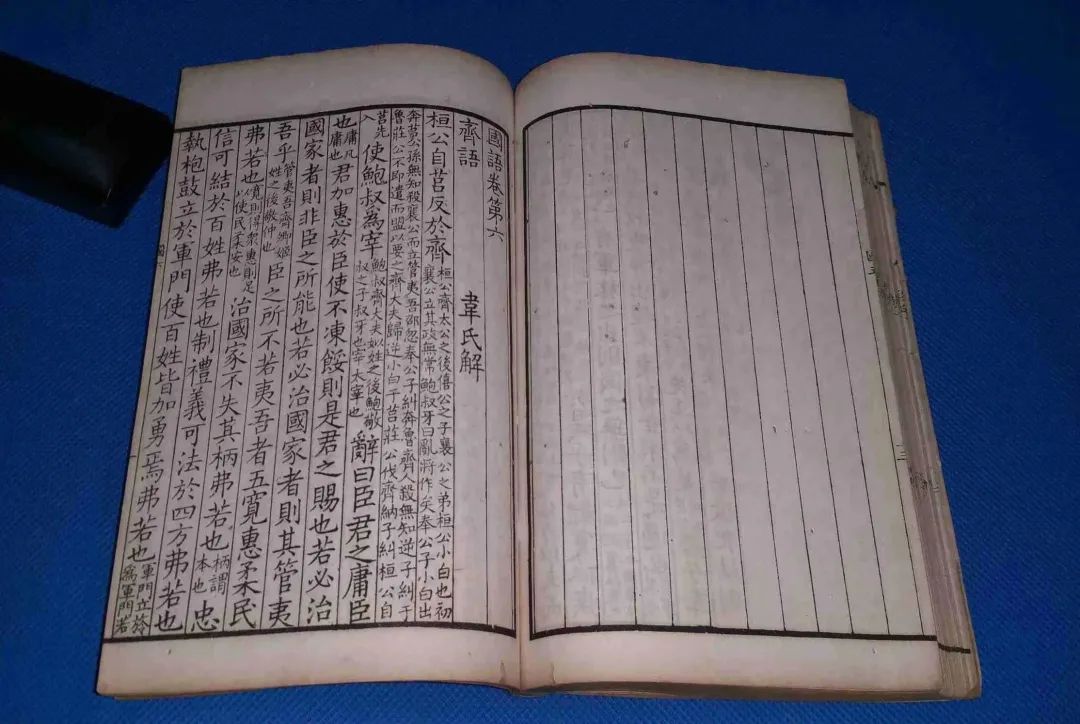 國語卷第六
齊語 韋氏解
桓公自莒反於齊桓公齊太公之後僖公之子襄公之弟桓公小白也初襄公立其政無常鮑叔牙曰亂將作矣奉公子小白出
奔莒公孫無知殺襄公而立管夷吾邵忽奉公子糾奔魯齊人殺無知逆子糾于魯莊公不即遣而盟以要之齊大夫歸逆小白于莒莊公伐齊納子糾桓公自
莒先入使鮑叔為宰鮑叔齊大夫姒姓之後鮑敬叔之子叔牙也宰太宰也辭曰臣君之庸臣
也庸凡庸也君加惠於臣使不凍餒則是君之賜也若必治
國家者則非臣之所能也若必治國家者則其管夷
吾乎管夷吾齊卿姬姓之後敬仲也臣之所不若夷吾者五寬惠柔民
弗若也寬則得衆惠則足以使民柔安也治國家不失其柄弗若也柄謂本也忠
信可結於百姓弗若也制禮義可法於四方弗若也
執枹鼓立於軍門使百姓皆加勇焉弗若也軍門立旍為軍門若